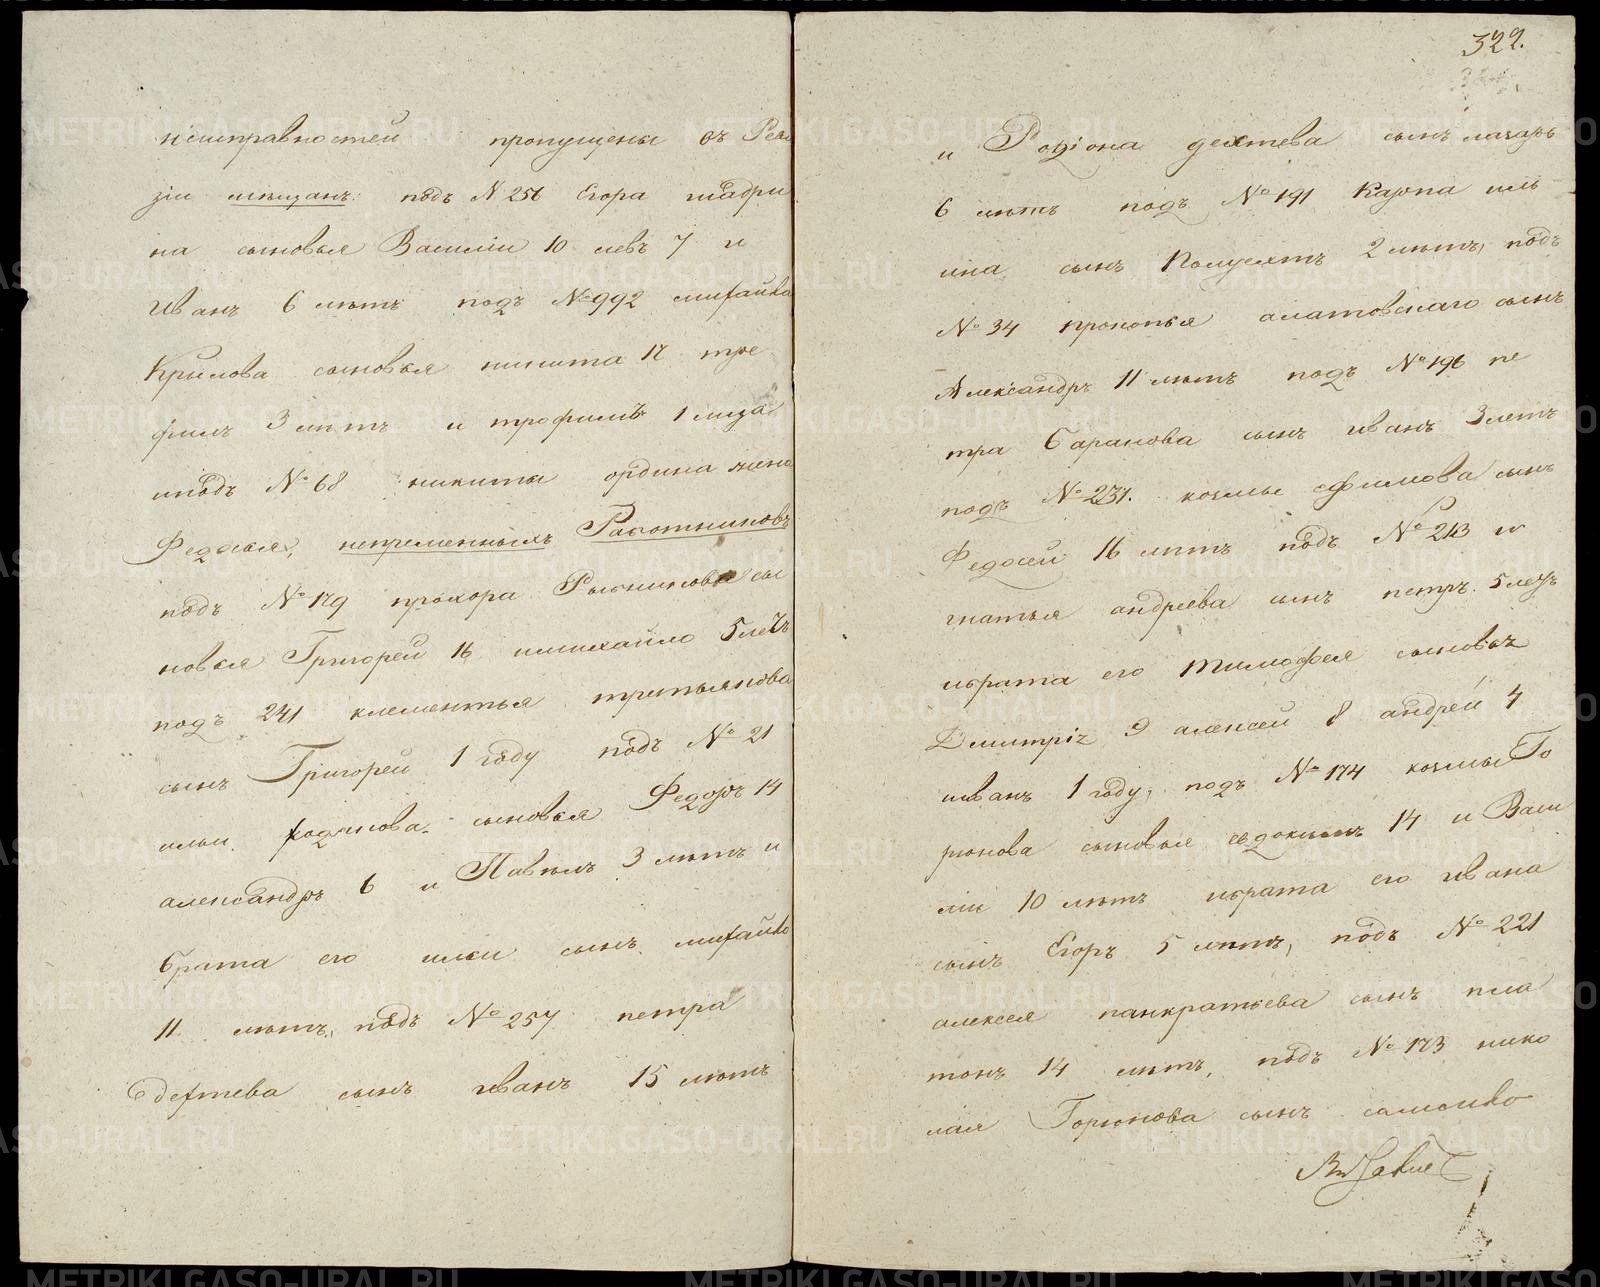 неисправностей пропущены въ Реви
зіи мещанъ: подъ № 256 Егора шадри
на сыновья Василіи 10 левъ 7 и
Иванъ 6 летъ подъ № 992 михайла
Крилова сыновья никита 12 тре
филъ 3 летъ и трофимъ 1 года
подъ № 68 никиты ордина
Федосья, непременныхъ Работниковъ
подъ № 179 прохора сы
новья Григорей 16 и михайло 5 летъ
подъ 241 клементья третьякова
сынъ Григорей 1 году подъ № 21
ильи родинова сыновья Федоръ 14
александръ 6 и Павелъ 3 летъ и
брата его ильи сынъ михайло
11 летъ, подъ № 257 петра
дехтева сынъ иванъ 15 летъ
322.
и Родіона дехтева сынъ лазарь
6 летъ подъ № 191 Карпа иль
ина сынъ Полуехтъ 2 летъ, подъ
№ 34 прокопья алатовскаго сынъ
Александръ 11 летъ подъ № 196 пе
тра баранова сынъ иванъ 3 летъ
подъ № 231. козмы ефимова сынъ
Федосей 16 летъ подъ № 213 и
гнатья андреева сынъ петръ 5 летъ
ибрата его тимофея сыновья
Дмитріи 9 алексей 8 андрей 4
иванъ 1 году, подъ № 174 козмы Го
рюнова сыновья евдокимъ 14 и Васи
лій 10 летъ ибрата его ивана
сынъ Егоръ 5 летъ, подъ № 221
алексея панкратьева сынъ пла
тонъ 14 летъ, подъ № 173 нико
лая Горюнова сынъ самойло